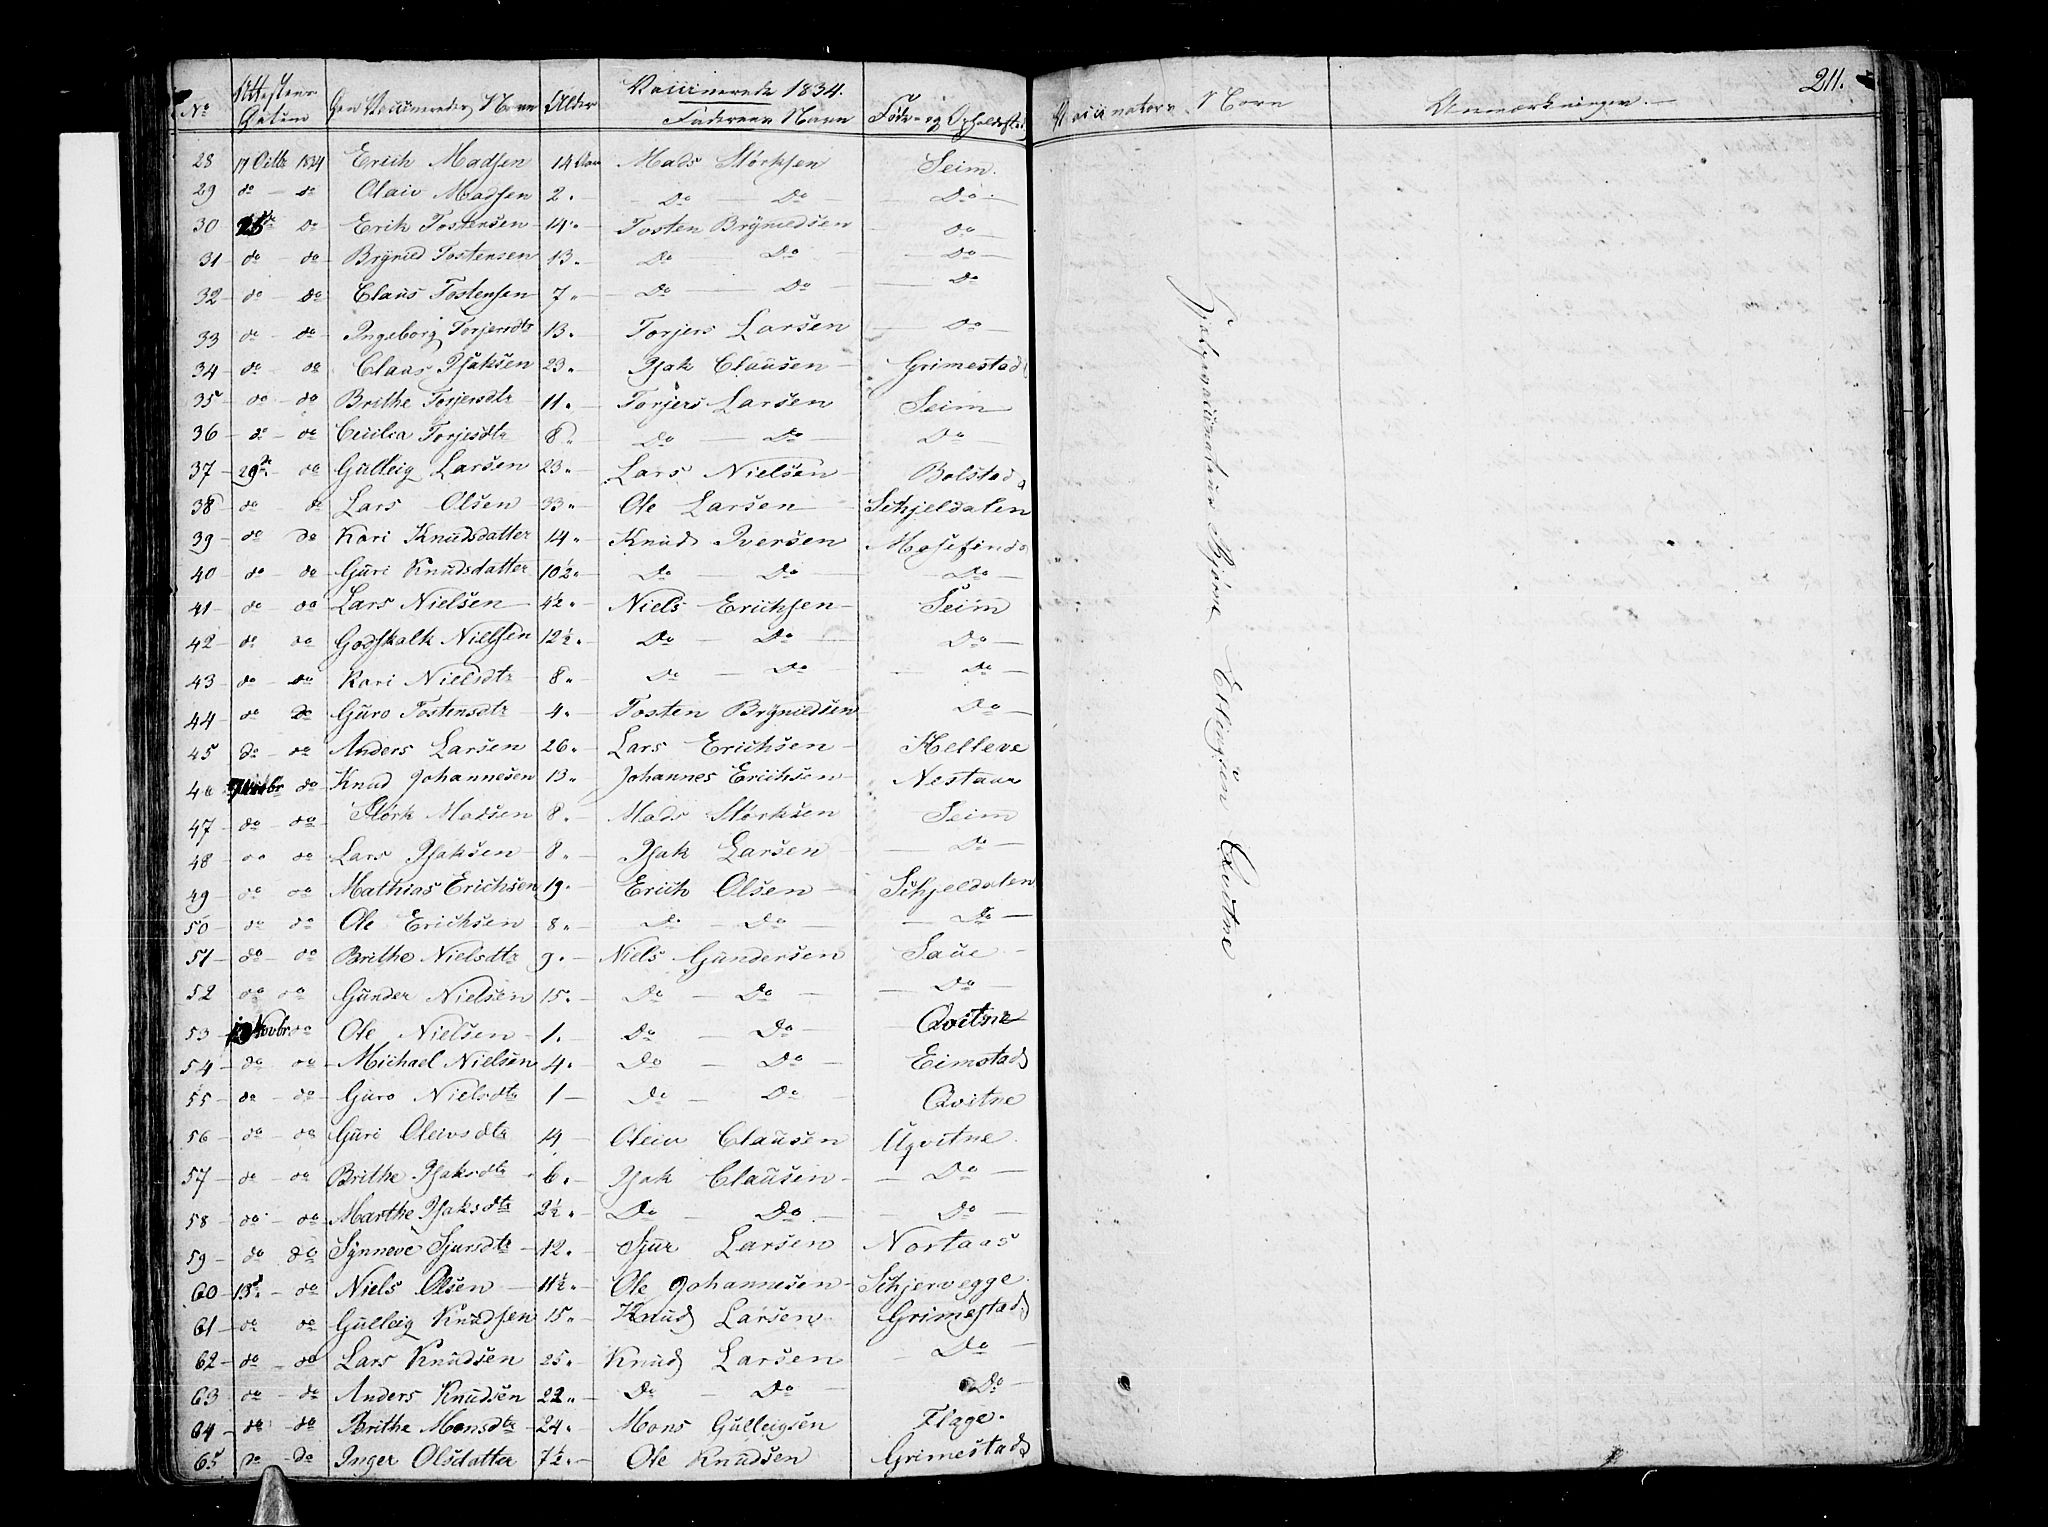 Vaccinerede 1834.
211.
No Attestens Datum Den Vaccineredes Navn Alder Faderens Navn Føde- og Opholdsted Vaccinatorens Navn Anmærkninger.
28 17 Octbr 1834 Erich Madsen 14 Mads Størksen Seim.
29 do - do Olaiv Madsen 2. Do - Do - Do -
30 do Erik Tostensen 14. Tosten Brynildsen Do -
31 - do - do Brynild Tostensen 13. Do Do - Do -
32 - do - do Claus Tostensen 7. Do - Do - Do
33 - do - do Ingeborg Torjersdtr 13. Torjers Larsen - Do -
34 - do - do Claus Isaksen 23. Isak Clausen Grimestad
35 - do - do Brithe Torjersdtr 11. Torjers Larsen Seim
36 - do - do Cecilia Torjesdtr 8. Do - Do - Do
37 - 29de - do Gulleig Larsen 23. Lars Nielsen Bolstad
38 - do do Lars Olsen 33. Ole Larsen Schjeldalen
39 - do do Kari Knudsdatter 14. Knud Iversen
40 - do - do Guri Knudsdatter 10½. Do - Do - Do -
41 - do - do Lars Nielsen 4½. Niels Erichsen Seim
42 - do do Godskalk Nielsen 12½. Do - Do - Do -
43 - do - do Kari Nielsdtr 8. Do - Do - Do -
44 - do do Guro Tostensdtr 4. Tosten Brynildsen Do -
45 - do - do Anders Larsen 26. Lars Erichsen Helleve
46 do Knud Johannesen 13. Johannes Erichsen Nestaas
47 - do - do Størk Madsen 8. Mads Størksen Seim
48 - do do Lars Isaksen 8. Isak Larsen - Do -
49 - do do Mathias Erichsen 19. Erich Olsen Schjeldalen
50 - do do Ole Erichsen 8. Do - Do - Do -
51 - do - do Brithe Nielsdtr 9. Niels Gundersen Saue -
52 do do Gunder Nielsen 15. Do - Do - Do -
53 Novbr do Ole Nielsen 1. Do Do - Qvitne
54 - do do Michael Nielsen 4. Do - Do - Eimstad
55 - do - do Guro Nielsdtr 1 - Do - Do - Qvitne
56 - do - do Guri Oleivsdtr 14 - Oleiv Clausen Uqvitne
57 - do - do Brithe Isaksdtr 6. Isak Clausen - Do -
58 - do - do Marthe Isaksdtr 2½. Do Do - Do -
59 - do do Synneve Sjursdtr 12. Sjur Larsen Nortaas
60 - 13de - do Niels Olsen 11½. Ole Johannesen Schjervegge
61 - do do Gulleig Knudsen 15. Knud Larsen Grimestad
62 - do - do Lars Knudsen 25. Knud Larsen - Do -
63 - do - do Anders Knudsen 22. Do - Do - Do -
64 - do - do Brithe Monsdtr 24. Mons Gulleigsen Flage.
65 - do - do Inger Olsdatter 7½. Ole Knudsen Grimestad
Hjelpevaccinateur Bjørn Ellingsen Qvitne